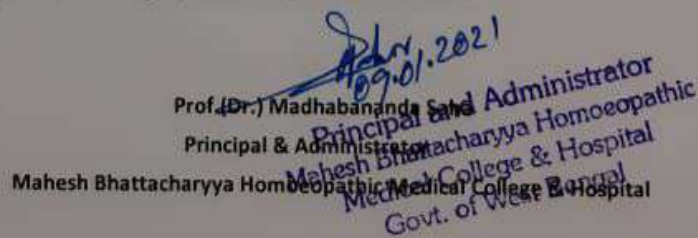 09.01.2021
Prof.(Dr.) Madhabananda
Principal & Administrator
Mahesh Bhattacharyya Homoeopathic Medical College & Hospital
Principal and Administrator
Mahesh Bhattacharyya Homoeopathic
Medical College & Hospital
Govt. of West Bengal